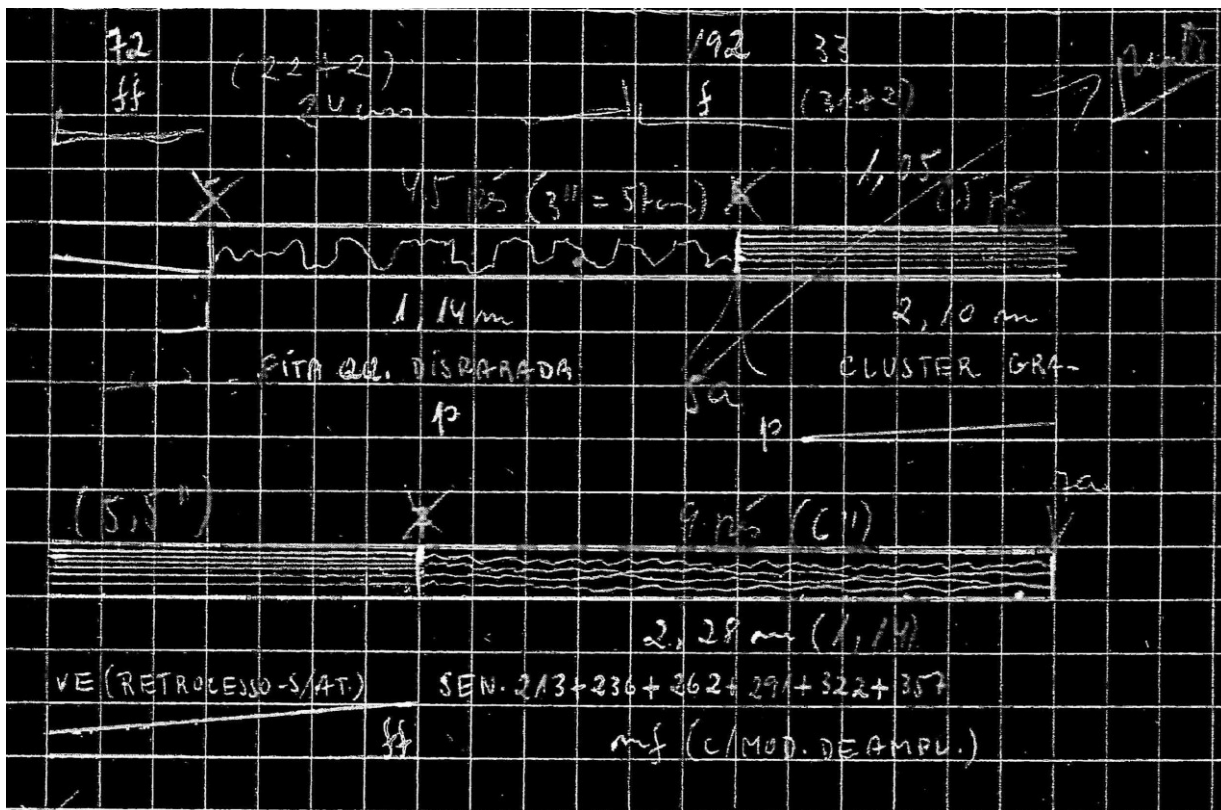 72 192 33
ff (22+2) f (31+2)
1,05
4,5 pés (3" = 57cm) 1,5 pé
1,14 m 2,10 m
FITA QQ. DISPARADA CLUSTER GRA-
5a
p p
(5,5") 9 pés (6") 7a
2,28 m (1,14)
VE (RETROCESSO-S/AT.) SEN. 213+236+262+291+322+357
ff mf (C/MOD. DE AMPL.)